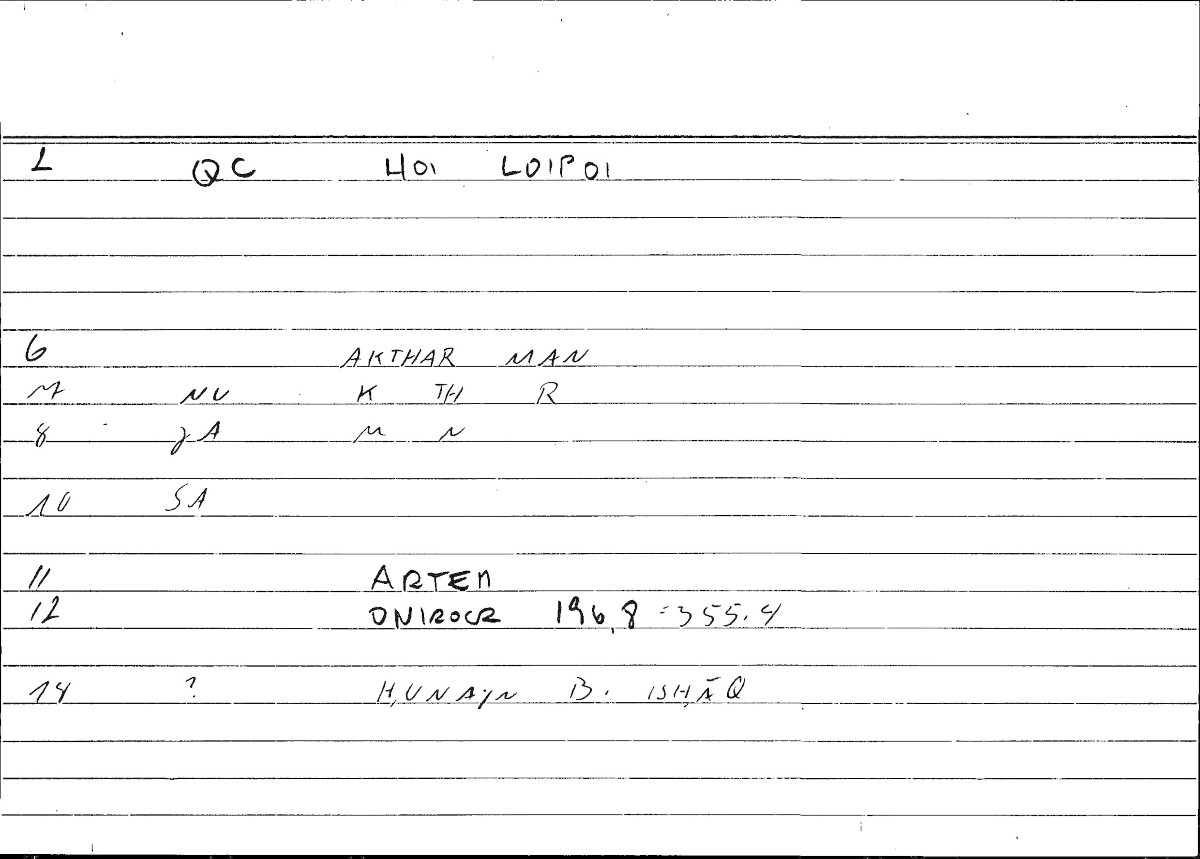 1 QC HOI LOIPOI
6 AKTHAR MAN
7 NU K TH R
8 JA M N
10 SA
11 ARTEM
12 ONIROCR 196,8 = 355.4
14 ? ḤUNAYN B. ISḤĀQ